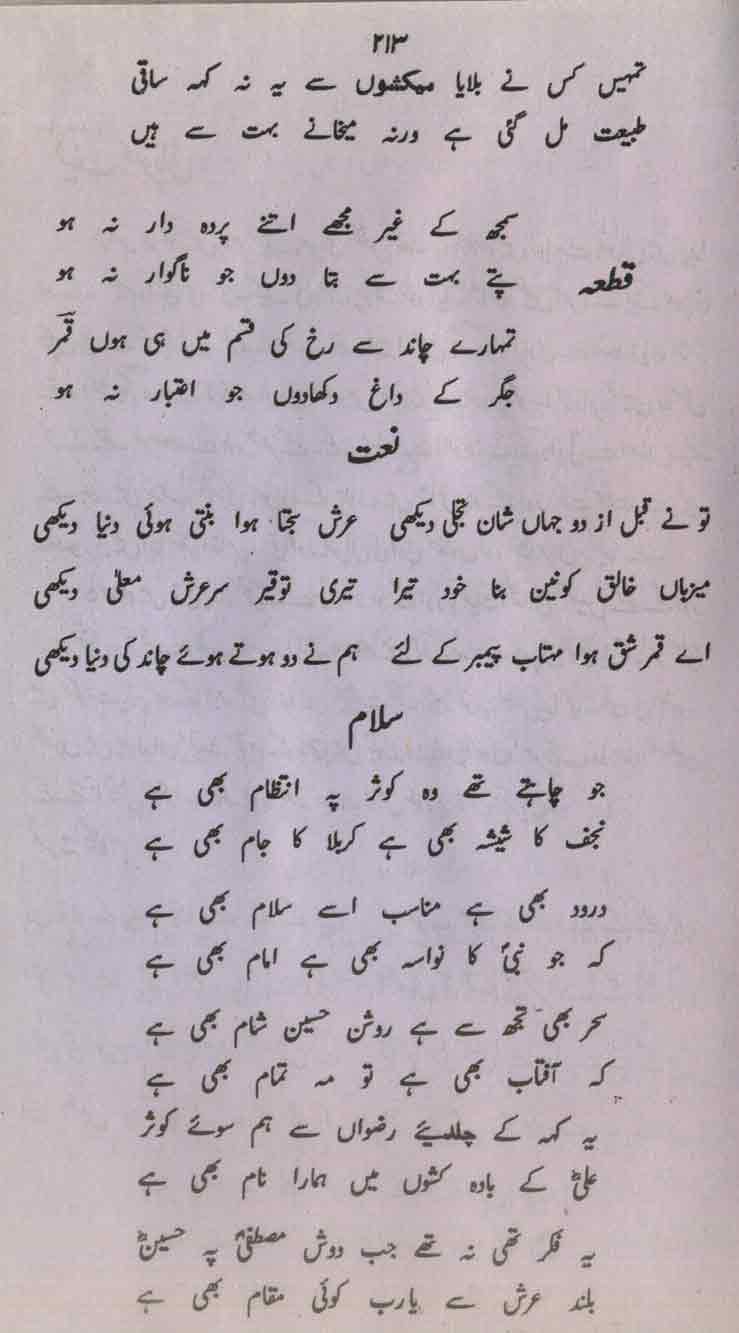 ۲۱۳
تمہیں کس نے بلایا میکشوں سے یہ نہ کہہ ساقی
طبیعت مل گئی ہے ورنہ میخانے بہت سے ہیں
سمجھ کے غیر مجھے اتنے پردہ دار نہ ہو
قطعہ پتے بہت سے بتا دوں جو ناگوار نہ ہو
تمہارے چاند سے رخ کی قسم میں ہی ہوں قمرؔ
جگر کے داغ دکھادوں جو اعتبار نہ ہو
نعت
تو نے قبل از دو جہاں شان تجلی دیکھی عرش سجتا ہوا بنتی ہوئی دنیا دیکھی
میزباں خالق کونین بنا خود تیرا تیری توقیر سرعرش معلیٰ دیکھی
اے قمر شق ہوا مہتاب پیمبر کے لئے ہم نے دو ہوتے ہوئے چاند کی دنیا دیکھی
سلام
جو چاہتے تھے وہ کوثر پہ انتظام بھی ہے
نجف کا شیشہ بھی ہے کربلا کا جام بھی ہے
درود بھی ہے مناسب اسے سلام بھی ہے
کہ جو نبیؐ کا نواسہ بھی ہے امام بھی ہے
سحر بھی تجھ سے ہے روشن حسین شام بھی ہے
کہ آفتاب بھی ہے تو مہ تمام بھی ہے
یہ کہہ کے چلدیئے رضواں سے ہم سوئے کوثر
علیؓ کے بادہ کشوں میں ہمارا نام بھی ہے
یہ فکر تھی نہ تھے جب دوش مصطفیؐ پہ حسینؓ
بلند عرش سے یارب کوئی مقام بھی ہے